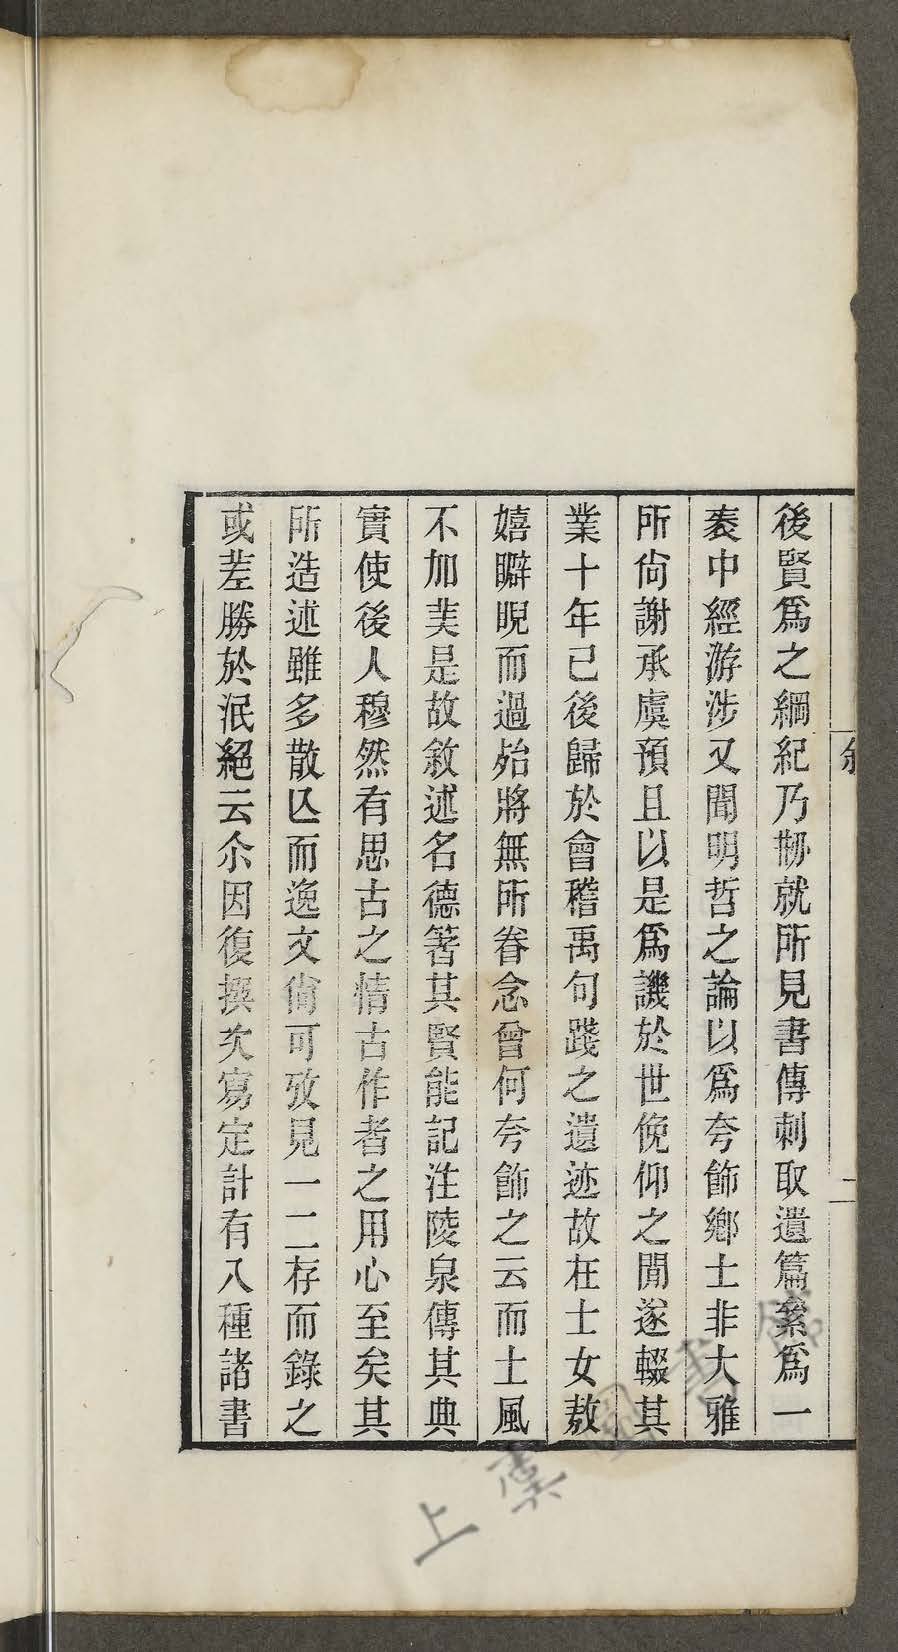 後賢爲之綱紀乃刱就所見書傳刺取遺篇絫爲一
袠中經游涉又聞明哲之論以爲夸飾鄉土非大雅
所尙謝承虞預且以是爲譏於世俛仰之閒遂輟其
業十年已後歸於會稽禹句踐之遺迹故在士女敖
嬉睥睨而過殆將無所眷念曾何夸飾之云而土風
不加美是故敘述名德箸其賢能記注陵泉傳其典
實使後人穆然有思古之情古作者之用心至矣其
所造述雖多散亾而逸文尙可攷見一二存而錄之
或差勝於泯絕云尒因復撰次寫定計有八種諸書
二
上虞圖書館